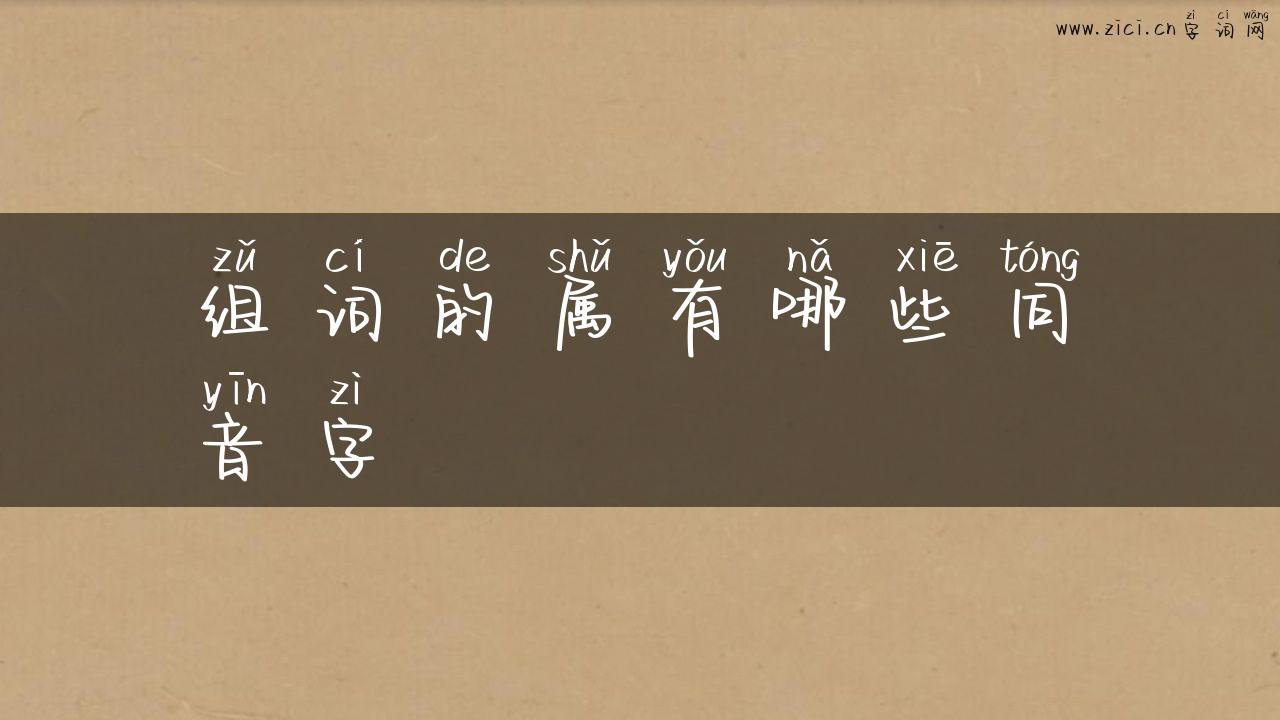 zì cí wǎng
www.zici.cn 字 词 网
zǔ cí de shǔ yǒu nǎ xiē tóng
组 词 的 属 有 哪 些 同
yīn zì
音 字